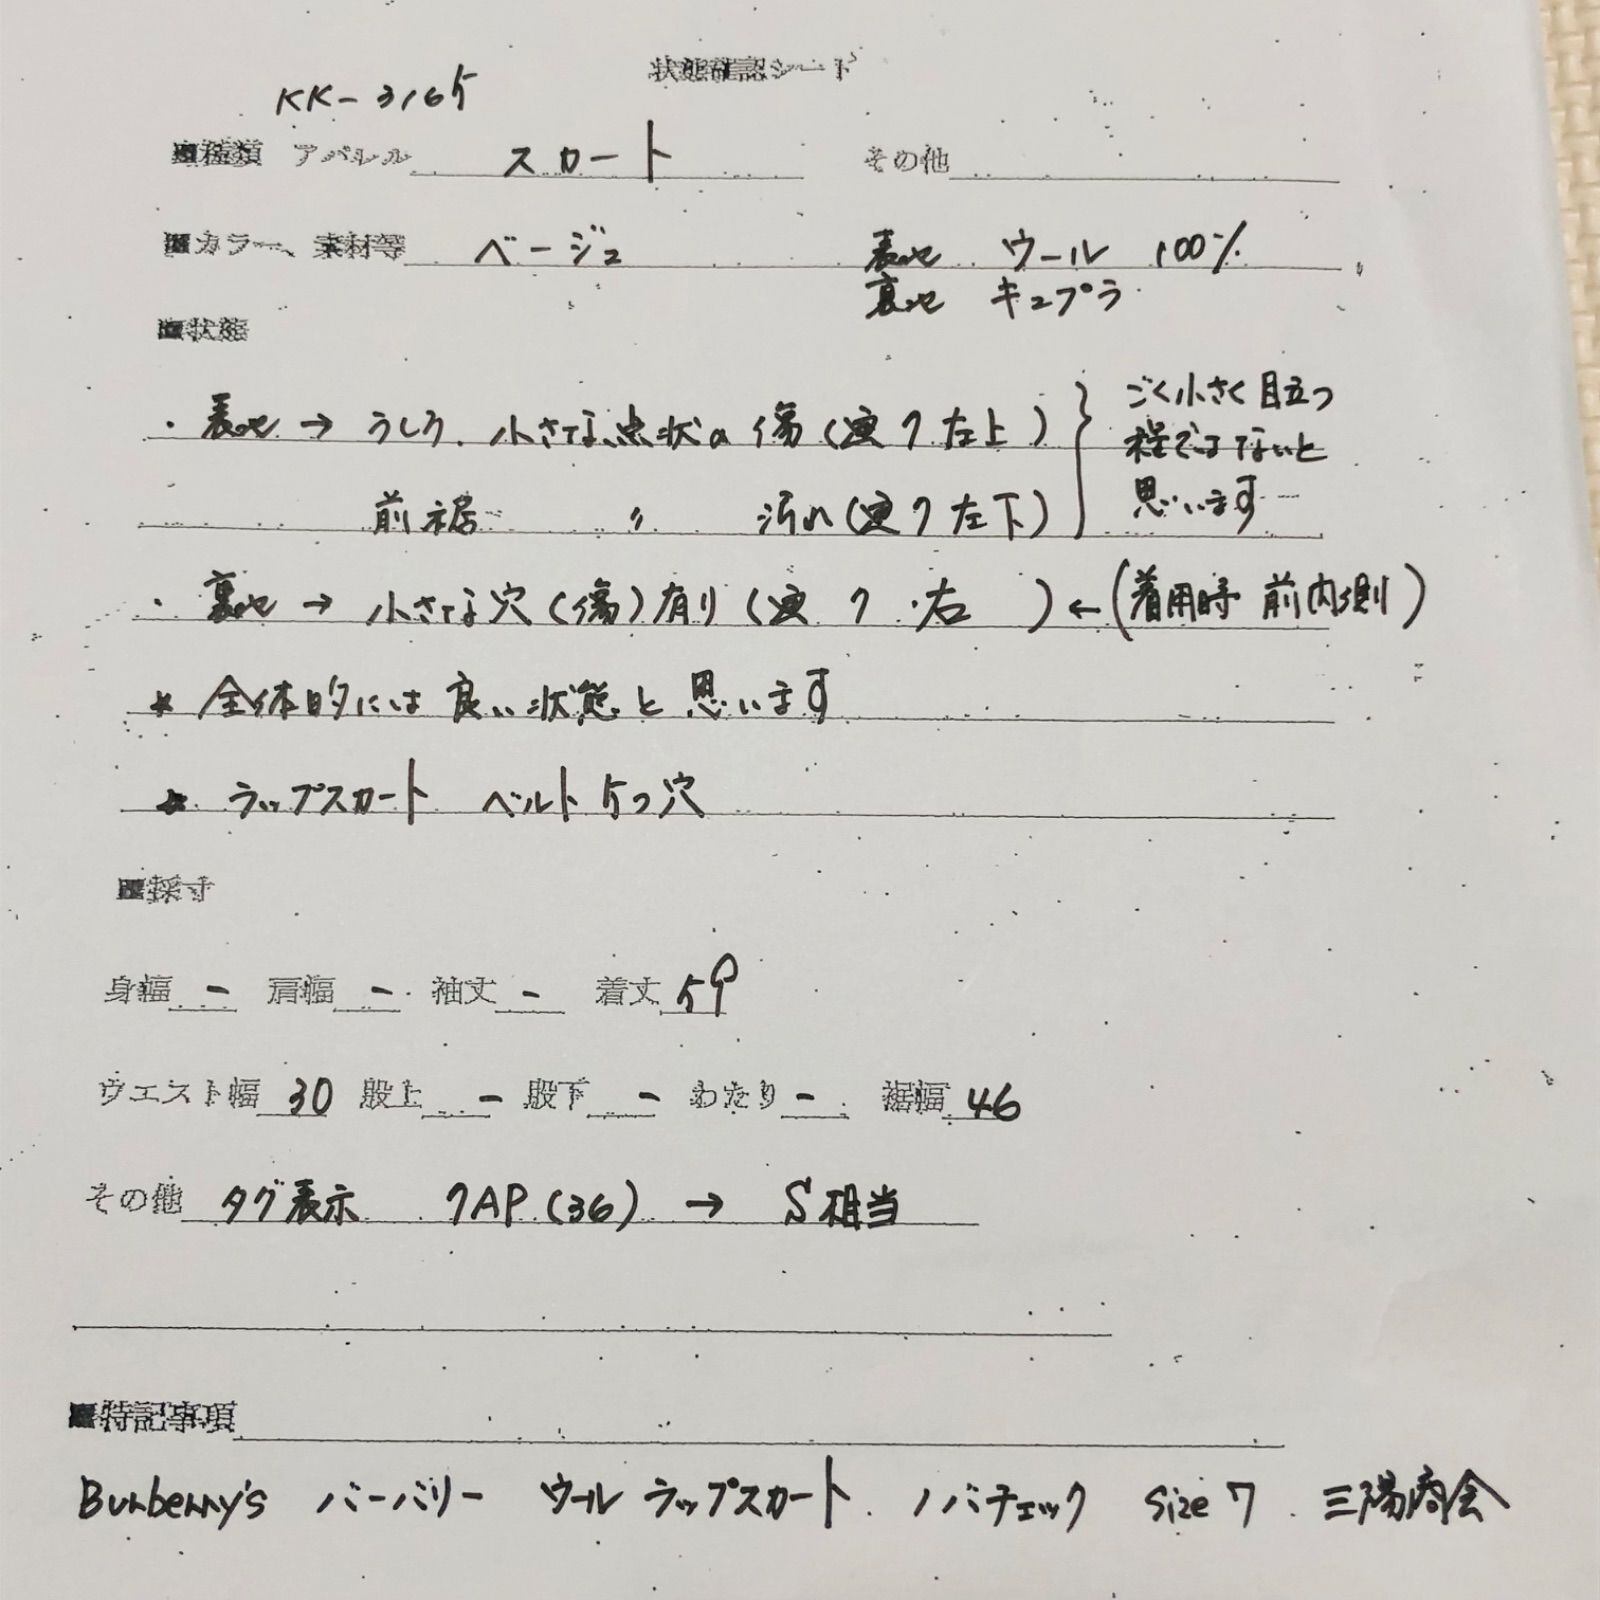 状態確認シート
KK-3165
■種類 アパレル スカート その他
■カラー、素材等 ベージュ 表地 ウール 100%
裏地 キュプラ
■状態
・表地 → うしろ 小さな点状の傷(画7左上) ごく小さく目立つ
程ではないと
前裾 〃 汚れ(画7左下) 思います
・裏地 → 小さな穴(傷)有り(画7 右 ) ← (着用時 前内側)
* 全体的には良い状態と思います
* ラップスカート ベルト5つ穴
■採寸
身幅 - 肩幅 - 袖丈 - 着丈 59
ウエスト幅 30 股上 - 股下 - わたり - 裾幅 46
その他 タグ表示 7AP(36) → S相当
■特記事項
Burberry's バーバリー ウール ラップスカート ノバチェック size 7 三陽商会